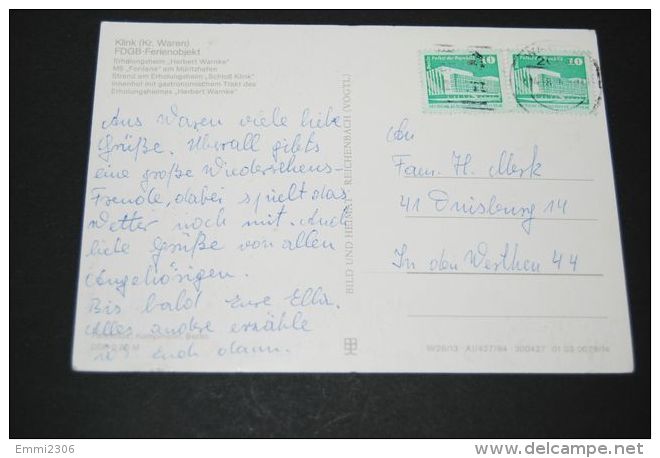 Klink (Kr. Waren)
FDGB-Ferienobjekt
Erholungsheim „Herbert Warnke"
MS „Fontane" am Müritzhafen
Strand am Erholungsheim „Schloß Klink"
Innenhof mit gastronomischem Trakt des
Erholungsheimes „Herbert Warnke"
Aus Waren viele liebe
Grüße. Überall gibts
eine große Wiedersehens-
Freude, dabei spielt das
Wetter noch mit. Auch
liebe Grüße von allen
Angehörigen.
Bis bald Eure Ella.
Alles andere erzähle
ich Euch dann.
BILD UND HEIMAT REICHENBACH (VOGTL)
10
10
An
Fam. H. Merk
41 Duisburg 14
In den Werthen 44
Emmi2306
www.delcampe.net